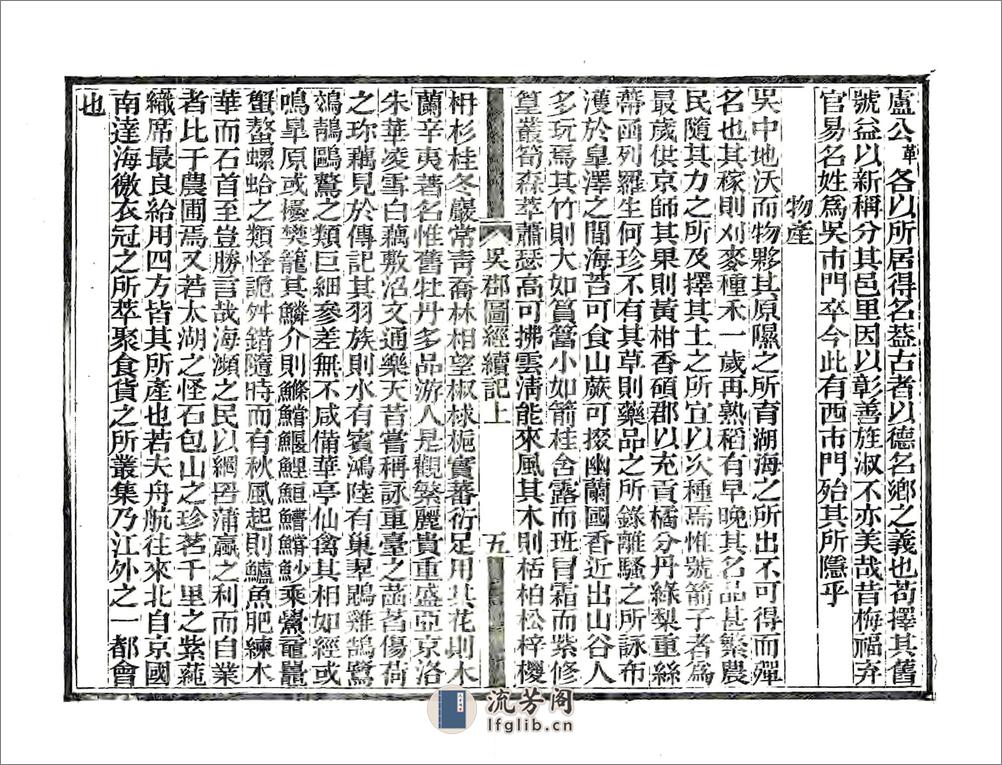 盧公革各以所居得名蓋古者以德名鄉之義也苟擇其舊
號益以新稱分其邑里因以彰善旌淑不亦美哉昔梅福弃
官易名姓爲吳市門卒今此有西市門殆其所隱乎
物產
吳中地沃而物夥其原隰之所育湖海之所出不可得而殫
名也其稼則刈麥種禾一歲再熟稻有早晚其名品甚繁農
民隨其力之所及擇其土之所宜以次種焉惟號箭子者爲
最歲供京師其果則黃柑香碩郡以充貢橘分丹綠梨重絲
蔕函列羅生何珍不有其草則藥品之所錄離騷之所詠布
濩於皐澤之間海苔可食山蕨可掇幽蘭國香近出山谷人
多玩焉其竹則大如篔簹小如箭桂含露而班冒霜而紫修
篁叢筍森萃蕭瑟高可拂雲淸能來風其木則栝柏松梓椶
吳郡圖經續記上
五
枏杉桂冬巖常靑喬林相望椒梂梔實蕃衍足用其花則木
蘭辛夷著名惟舊牡丹多品游人是觀繁麗貴重盛亞京洛
朱華凌雪白藕敷沼文通樂天昔嘗稱詠重臺之菡萏傷荷
之珎藕見於傳記其羽族則水有賓鴻陸有巢翠鵾雞鵠鷺
鵁鶄鷗鷘之類巨細參差無不咸備華亭仙禽其相如經或
鳴皐原或擾樊籠其鱗介則鰷鱨鰋鯉䱎鰽鯋乘鱟黿鼉
蟹螯螺蛤之類怪詭舛錯隨時而有秋風起則鱸魚肥練木
華而石首至豈勝言哉海瀕之民以網罟蒲蠃之利而自業
者比于農圃焉又若太湖之怪石包山之珍茗千里之紫蓴
織席最良給用四方皆其所產也若夫舟航往來北自京國
南達海徼衣冠之所萃聚食貨之所叢集乃江外之一都會
也
流芳阁
lfglib.cn